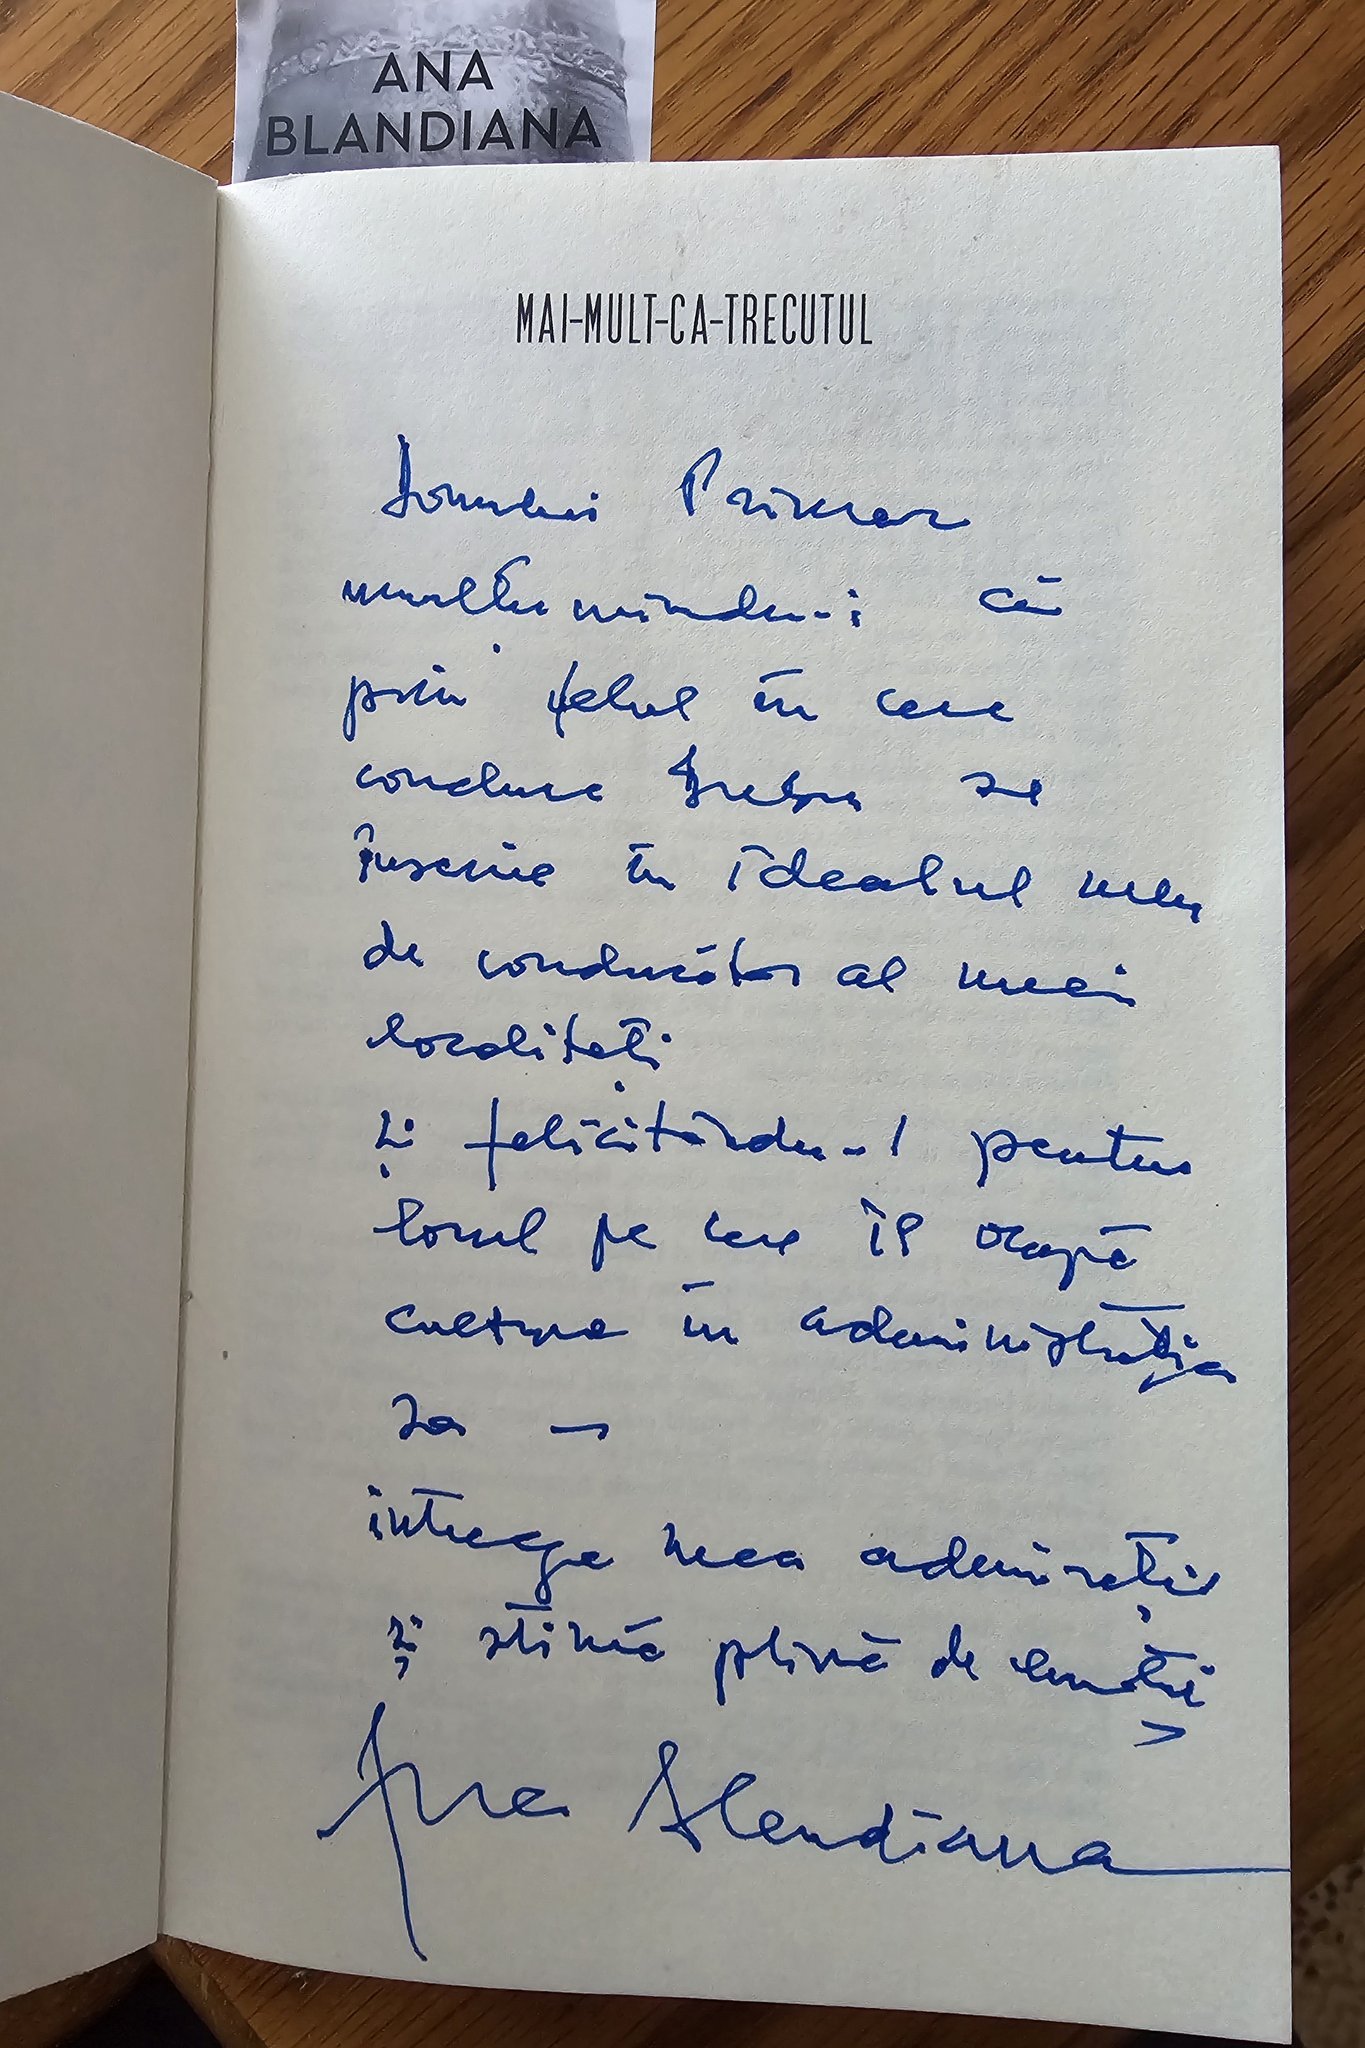 ANA
BLANDIANA
MAI-MULT-CA-TRECUTUL
Domnului Primar
mulțumindu-i că
prin felul în care
conduce se
înscrie în idealul meu
de conducător al unei
localități
și felicitându-l pentru
locul pe care îl ocupă
cultura în administrația
sa –
întreaga mea admirație
și stimă plină de emoție
Ana Blandiana